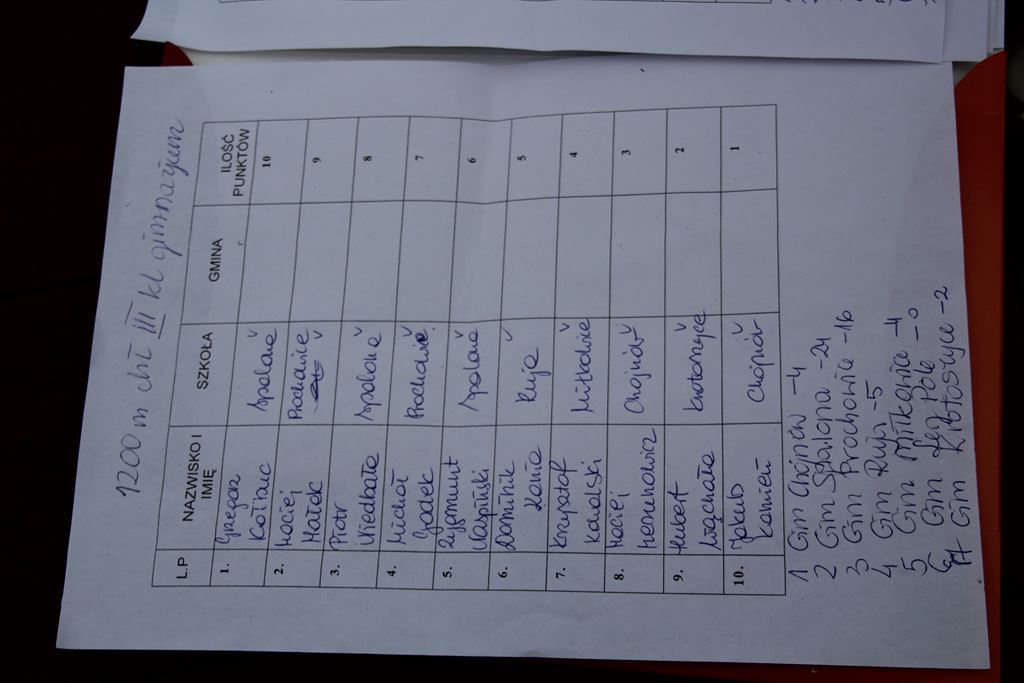 1200 m chł III kl gimnazjum
L.P NAZWISKO I IMIĘ SZKOŁA GMINA ILOŚĆ PUNKTÓW
1. Grzegorz Spalona 10
2. Maciej Małek Prochowice 9
3. Piotr Niedbała Spalona 8
4. Michał Godek Prochowice 7
5. Zygmunt Spalona 6
6. Dominik Kania Ruja 5
7. Krzysztof Kowalski Miłkowice 4
8. Maciej Chojnów 3
9. Hubert 2
10. Jakub Kamień Chojnów 1
1 Gim Chojnów - 4
2 Gim Spalona - 24
3 Gim Prochowice - 16
4 Gim Ruja - 5
5 Gim Miłkowice - 4
Gim Leg Pole - 0
Gim - 2